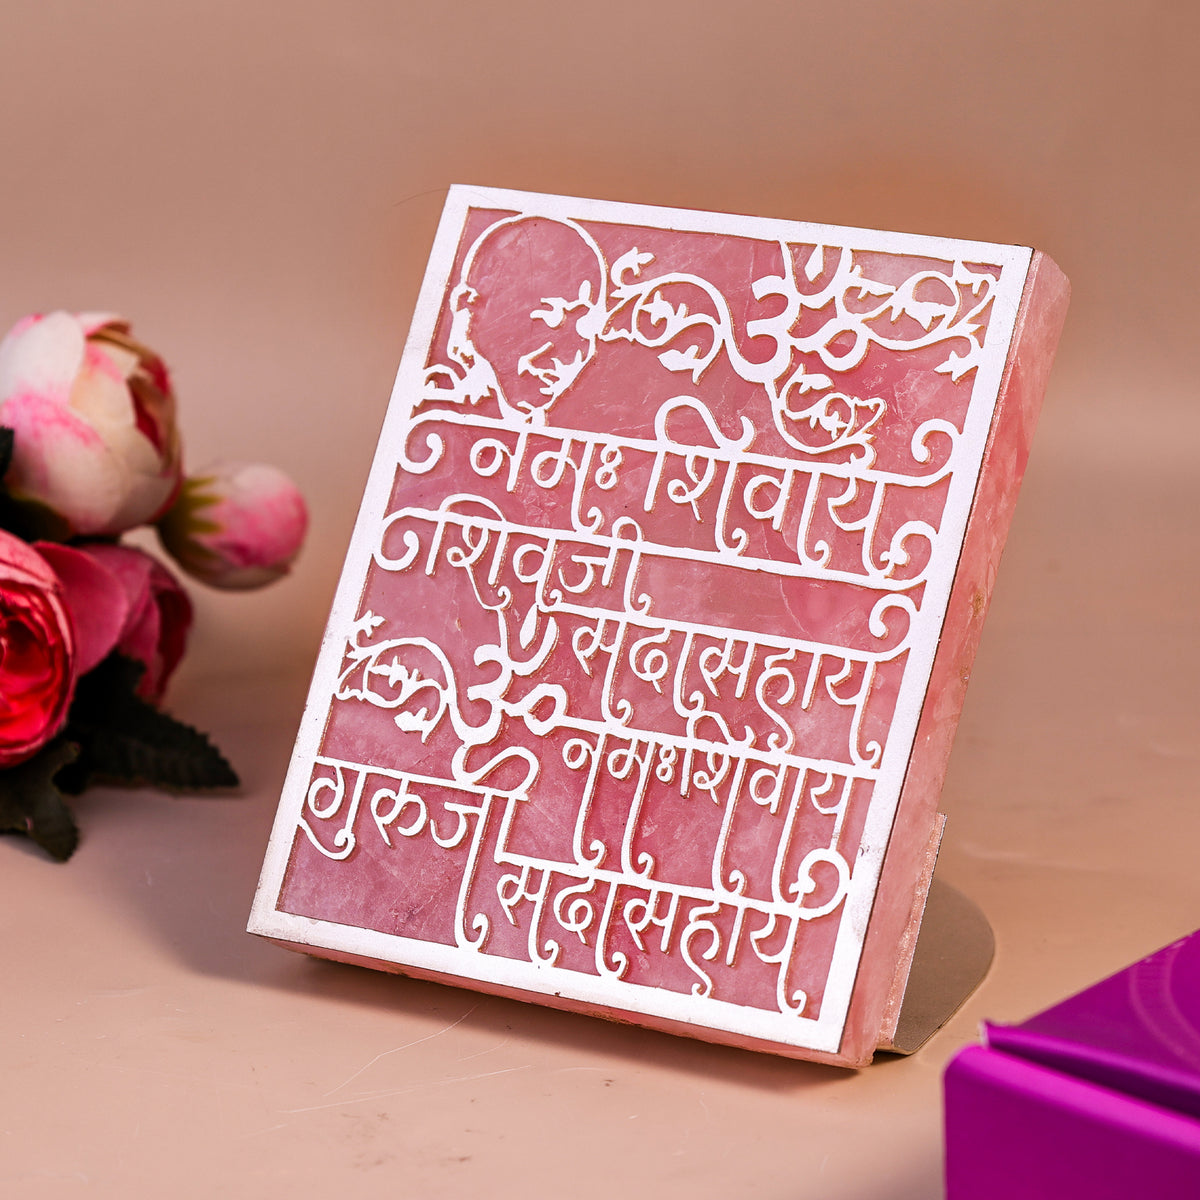 ॐ
नमः शिवाय
शिवजी
सदा सहाय
ॐ नमः शिवाय
गुरुजी
सदा सहाय